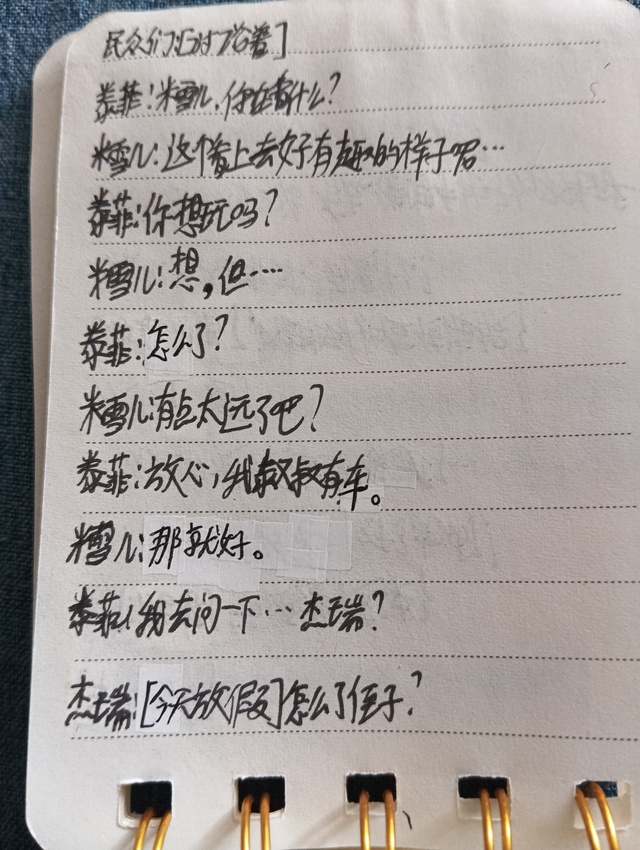 民众们
泰菲:米雪儿,你在看什么?
米雪儿:这个看上去好有趣的样子呢…
泰菲:你想玩吗?
米雪儿:想,但…
泰菲:怎么了?
米雪儿:有点太远了吧?
泰菲:放心,我叔叔有车。
米雪儿:那就好。
泰菲:我去问一下…杰瑞?
杰瑞:[今天放假]怎么了侄子?